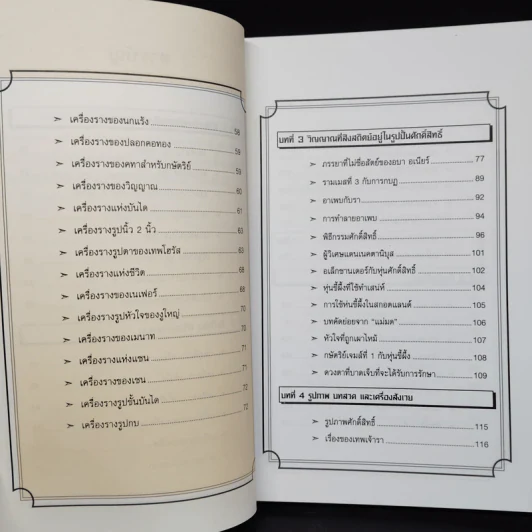 ➣ เครื่องรางของนกแร้ง 58
➣ เครื่องรางของปลอกคอทอง 59
➣ เครื่องรางของคทาสำหรับกษัตริย์ 59
➣ เครื่องรางของวิญญาณ 60
➣ เครื่องรางแห่งบันได 61
➣ เครื่องรางรูปนิ้ว 2 นิ้ว 63
➣ เครื่องรางรูปตาของเทพโฮรัส 63
➣ เครื่องรางแห่งชีวิต 68
➣ เครื่องรางของเนเฟอร์ 69
➣ เครื่องรางรูปหัวใจของงูใหญ่ 70
➣ เครื่องรางของเมนาท 70
➣ เครื่องรางแห่งแซน 71
➣ เครื่องรางของเซน 71
➣ เครื่องรางรูปขั้นบันได 72
➣ เครื่องรางรูปกบ 72
บทที่ 3 วิญญาณที่สิงสถิตย์อยู่ในรูปปั้นศักดิ์สิทธิ์
➣ ภรรยาที่ไม่ซื่อสัตย์ของอบา อเนียร์ 77
➣ รามเมสที่ 3 กับการกบฏ 89
➣ อาเพบกับรา 92
➣ การทำลายอาเพบ 94
➣ พิธีกรรมศักดิ์สิทธิ์ 96
➣ ผู้วิเศษแดนเนคตานิบุส 101
➣ อเล็กซานเดอร์กับหุ่นศักดิ์สิทธิ์ 102
➣ หุ่นขี้ผึ้งที่ใช้ทำเสน่ห์ 104
➣ การใช้หุ่นขี้ผึ้งในสกอตแลนด์ 105
➣ บทคัดย่อยจาก “แม่มด” 106
➣ หัวใจที่ถูกเผาไหม้ 107
➣ กษัตริย์เจมส์ที่ 1 กับหุ่นขี้ผึ้ง 108
➣ ดวงตาที่บาดเจ็บที่จะได้รับการรักษา 109
บทที่ 4 รูปภาพ บทสวด และเครื่องสังเวย
➣ รูปภาพศักดิ์สิทธิ์ 115
➣ เรื่องของเทพเจ้ารา 116